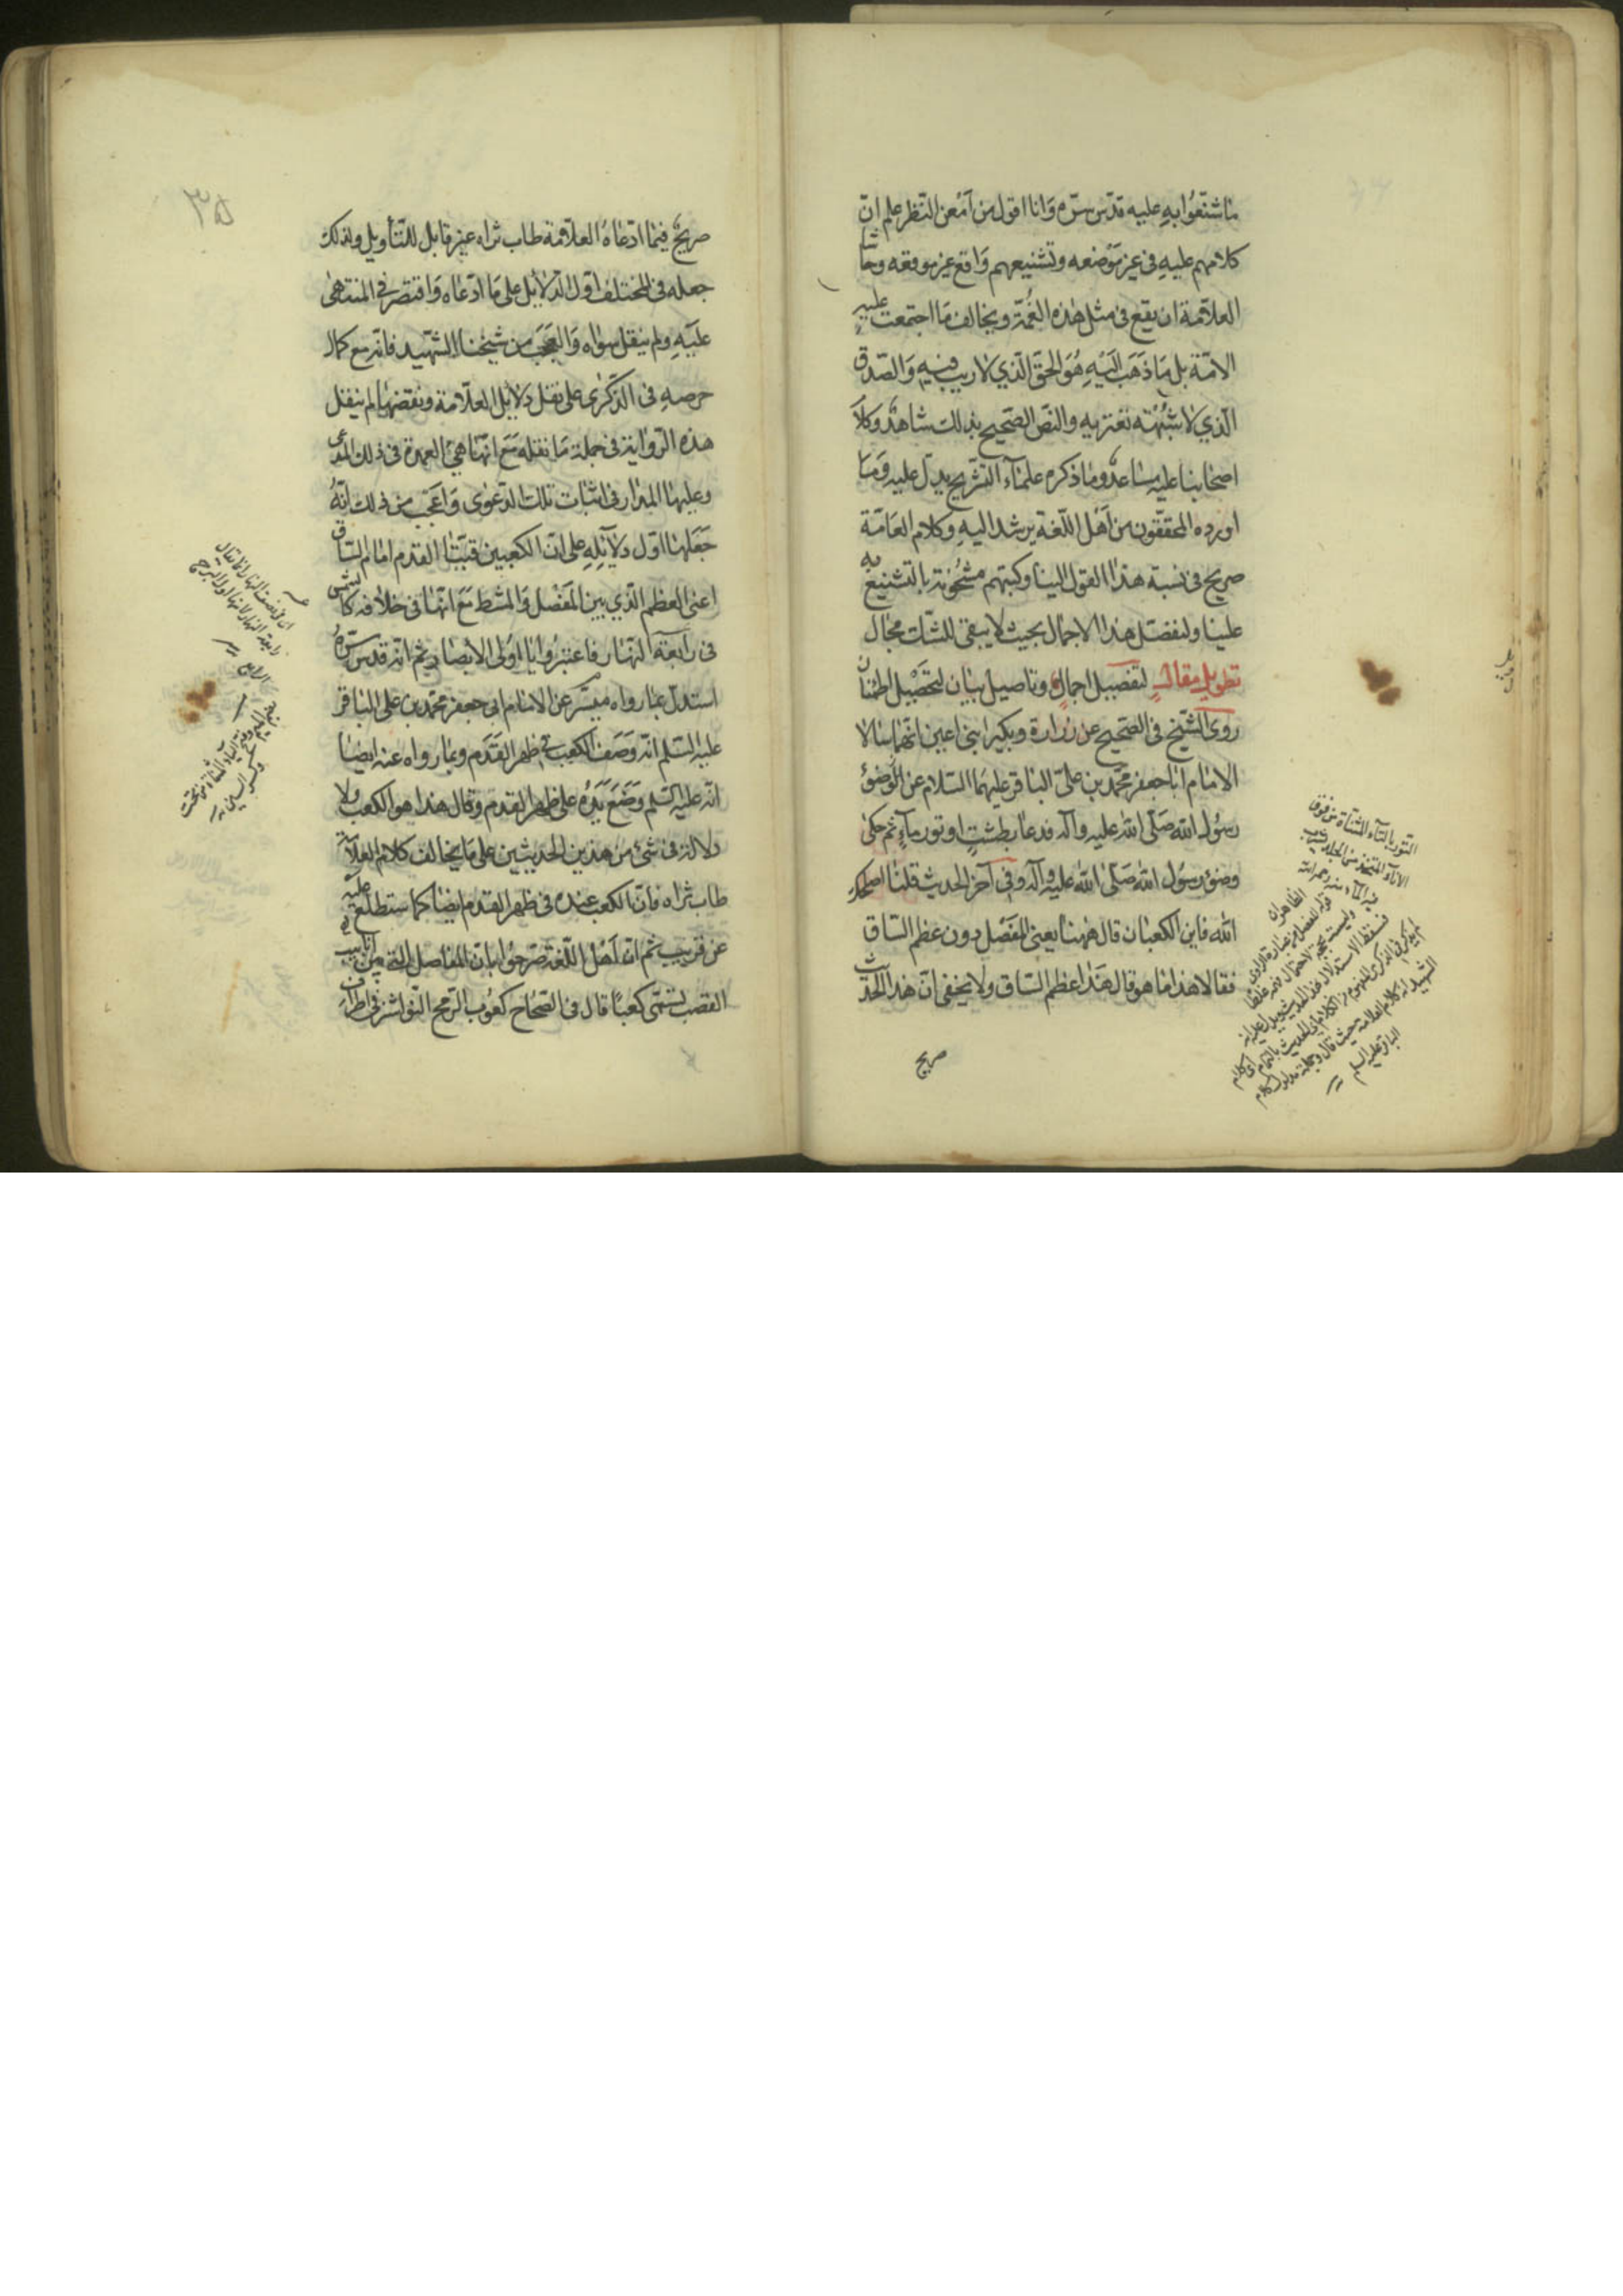 ما شنعوا به عليه قدس سره وانا اقول من امعن النظر علم ان
كلامهم عليه فى غير موضعه وتشنيعهم واقع غير موقعه وحاشا
العلامة ان يقع فى مثل هذه الغمة ويخالف ما اجتمعت عليه
الامة بل ما ذهب اليه هو الحق الذي لا ريب فيه والصدق
الذي لا شبهة تعتريه والنص الصحيح بذلك شاهد وكلام
اصحابنا عليه مساعد وما ذكره علماء التشريح يدل عليه وما
اورده المحققون من اهل اللغة يرشد اليه وكلام العامة
صريح فى نسبة هذا القول الينا وكتبهم مشحونة بالتشنيع به
علينا ولنفصل هذا الاجمال بحيث لا يبقى للشك مجال
تطويل مقال لتفصيل اجمال وتاصيل بيان لتحصيل اطمئنان
روى الشيخ فى الصحيح عن زرارة وبكير ابنى اعين انهما سالا
الامام ابا جعفر محمد بن على الباقر عليهما السلام عن وضوء
رسول الله صلى الله عليه واله فدعا بطشت او تور ماء ثم حكى
وضوء رسول الله صلى الله عليه وآله وفى آخر الحديث قلنا اصلحك
الله فاين الكعبان قال ههنا يعنى المفصل دون عظم الساق
فقالا هذا ما هو قال هذا عظم الساق ولا يخفى ان هذا الحديث
صريح
التور بالتاء المثناة من فوق
الاناء المتخذ من الجلد يشرب
فيه الماء منه رحمه الله
صريح فيما ادعاه العلامة طاب ثراه غير قابل للتأويل ولذلك
جعله فى المختلف اول الدلائل على ما ادعاه واقتصر فى المنتهى
عليه ولم ينقل سواه والعجب من شيخنا الشهيد فانه مع كمال
حرصه فى الذكرى على نقل دلائل العلامة ونقضها لم ينقل
هذه الرواية فى جملة ما نقله مع انها هى العمدة فى ذلك المدعى
وعليها المدار فى اثبات تلك الدعوى واعجب من ذلك انه
جعلها اول دلائله على ان الكعبين قبتا القدم امام الساق
اعنى العظم الذي بين المفصل والمشط مع انها فى خلافه كالشمس
فى رابعة النهار فاعتبروا يا اولى الابصار ثم انه قدس سره
استدل بما رواه ميسر عن الامام ابى جعفر محمد بن على الباقر
عليه السلم انه وصف الكعب فى ظهر القدم وبما رواه عنه ايضا
انه عليه السلم وضع يده على ظهر القدم وقال هذا هو الكعب ولا
دلالة فى شئ من هذين الحديثين على ما يخالف كلام العلامة
طاب ثراه فان الكعب عنده فى ظهر القدم ايضا كما ستطلع عليه
عن قريب ثم ان اهل اللغة صرحوا بان المفاصل التى بين انابيب
القصب تسمى كعبا قال فى الصحاح كعوب الرمح النواشز فى اطراف
٣٥
بضم الميم وفتح الياء المثناة من تحت
وكسر السين